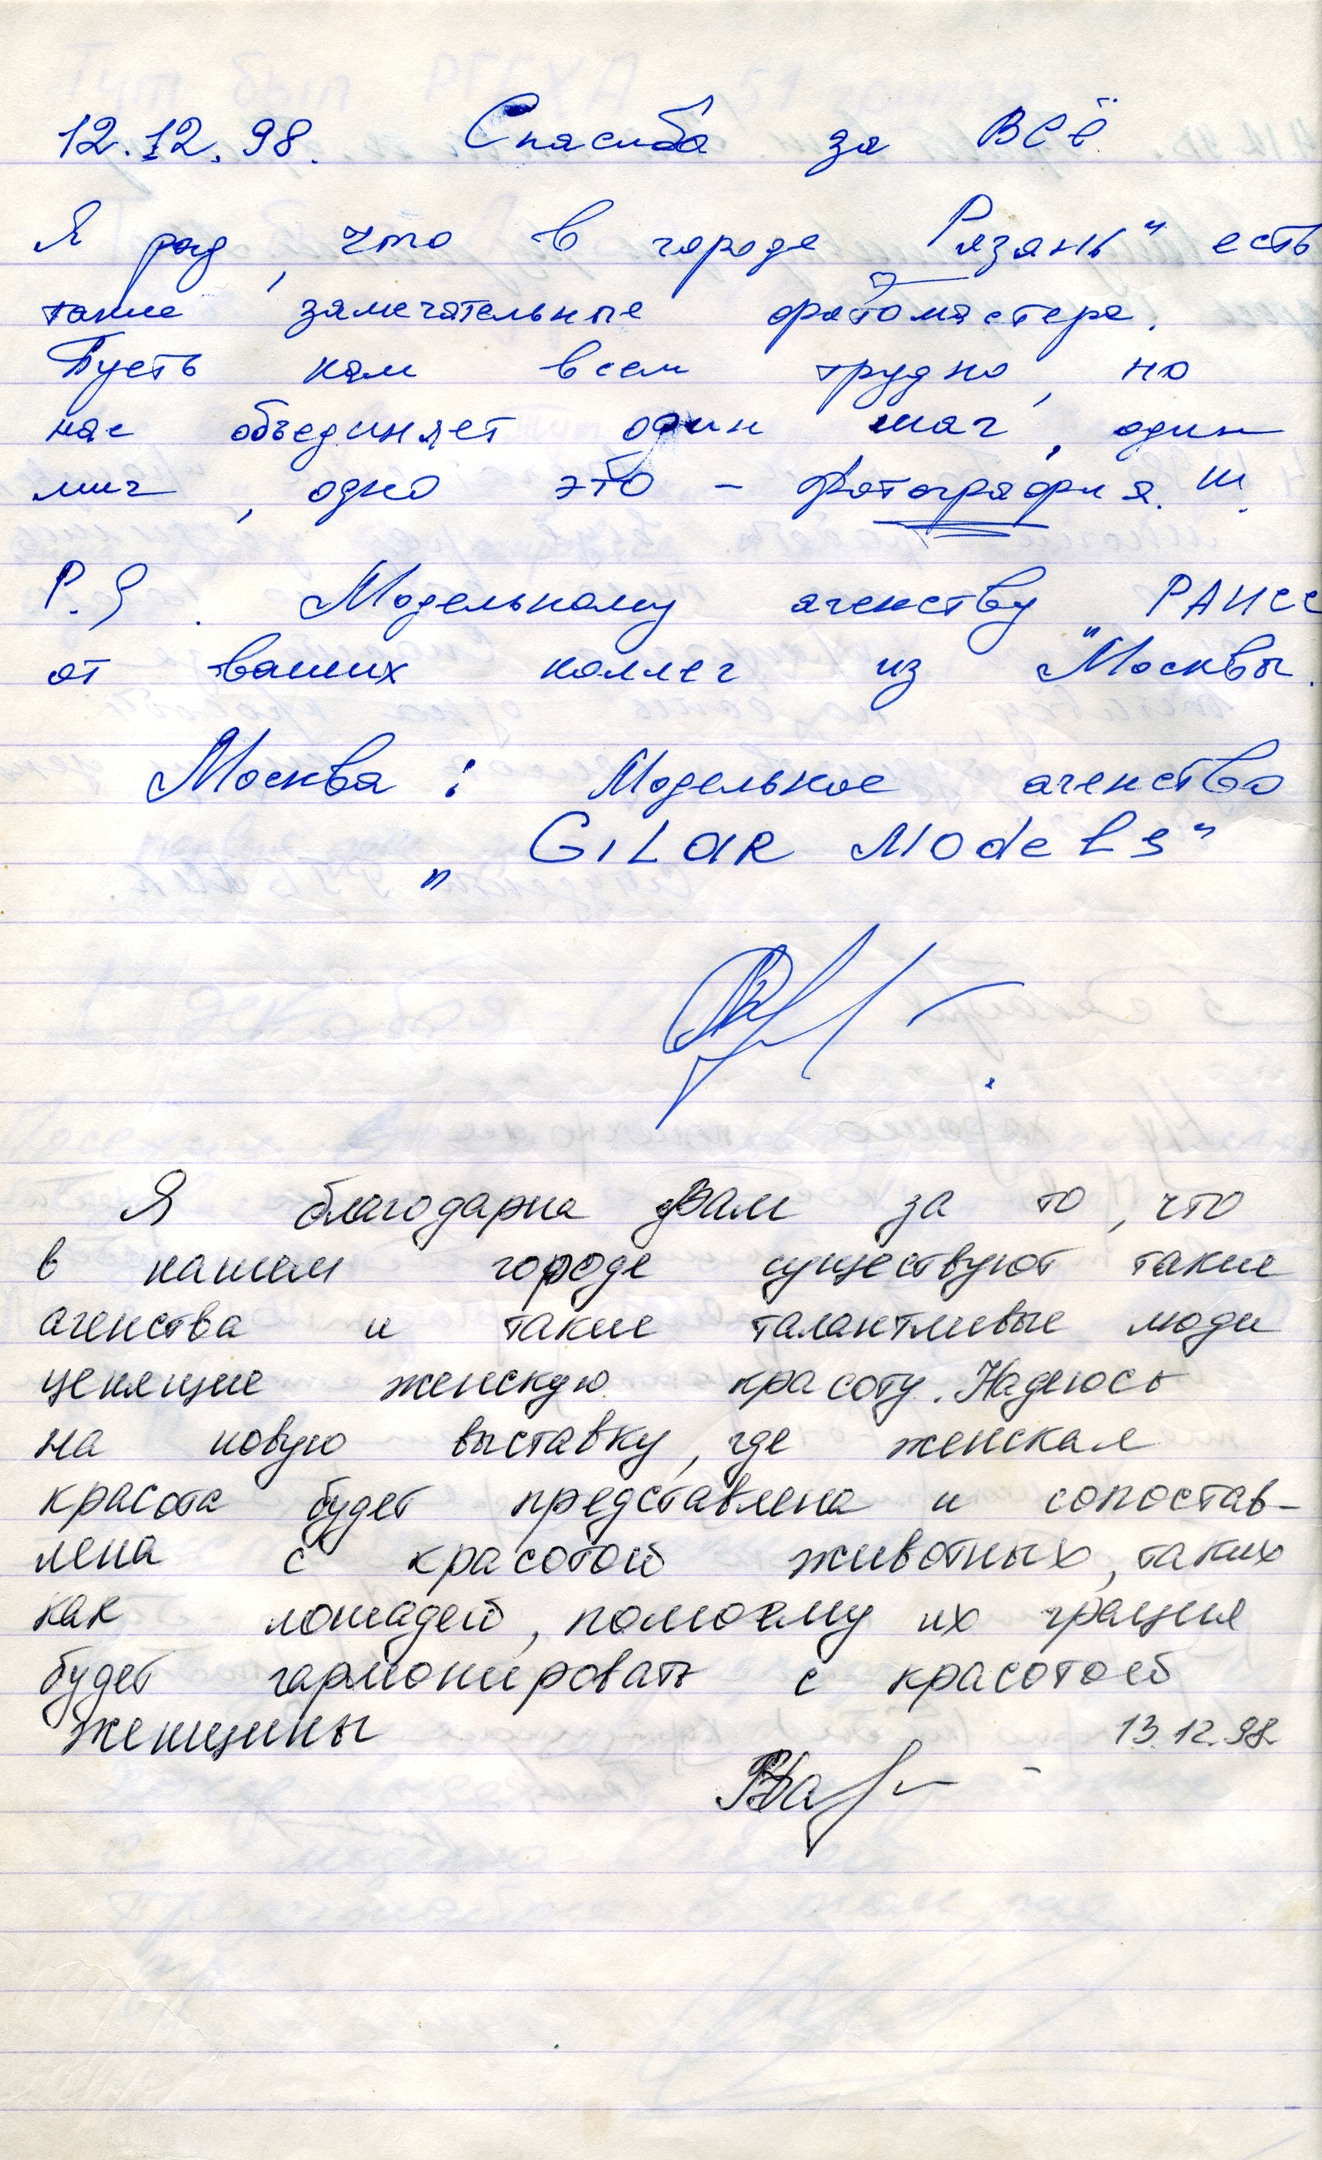 12.12.98. Спасибо за ВСЁ.
Я рад, что в городе Рязань" есть
такие замечательные фотомастера.
Пусть нам всем трудно, но
нас объединяет один шаг, один
миг, одно это - фотография.!!!
P.S. Модельному агенству РАИСС
от ваших коллег из "Москвы.
Москва: Модельное агенство
„GILAR MODELS"
Я благодарна Вам за то, что
в нашем городе существуют такие
агенства и такие талантливые люди
ценящие женскую красоту. Надеюсь
на новую выставку, где женская
красота будет представлена и сопостав-
лена с красотой животных, таких
как лошадей, помоему их грация
будет гармонировать с красотой
женщины 13.12.98